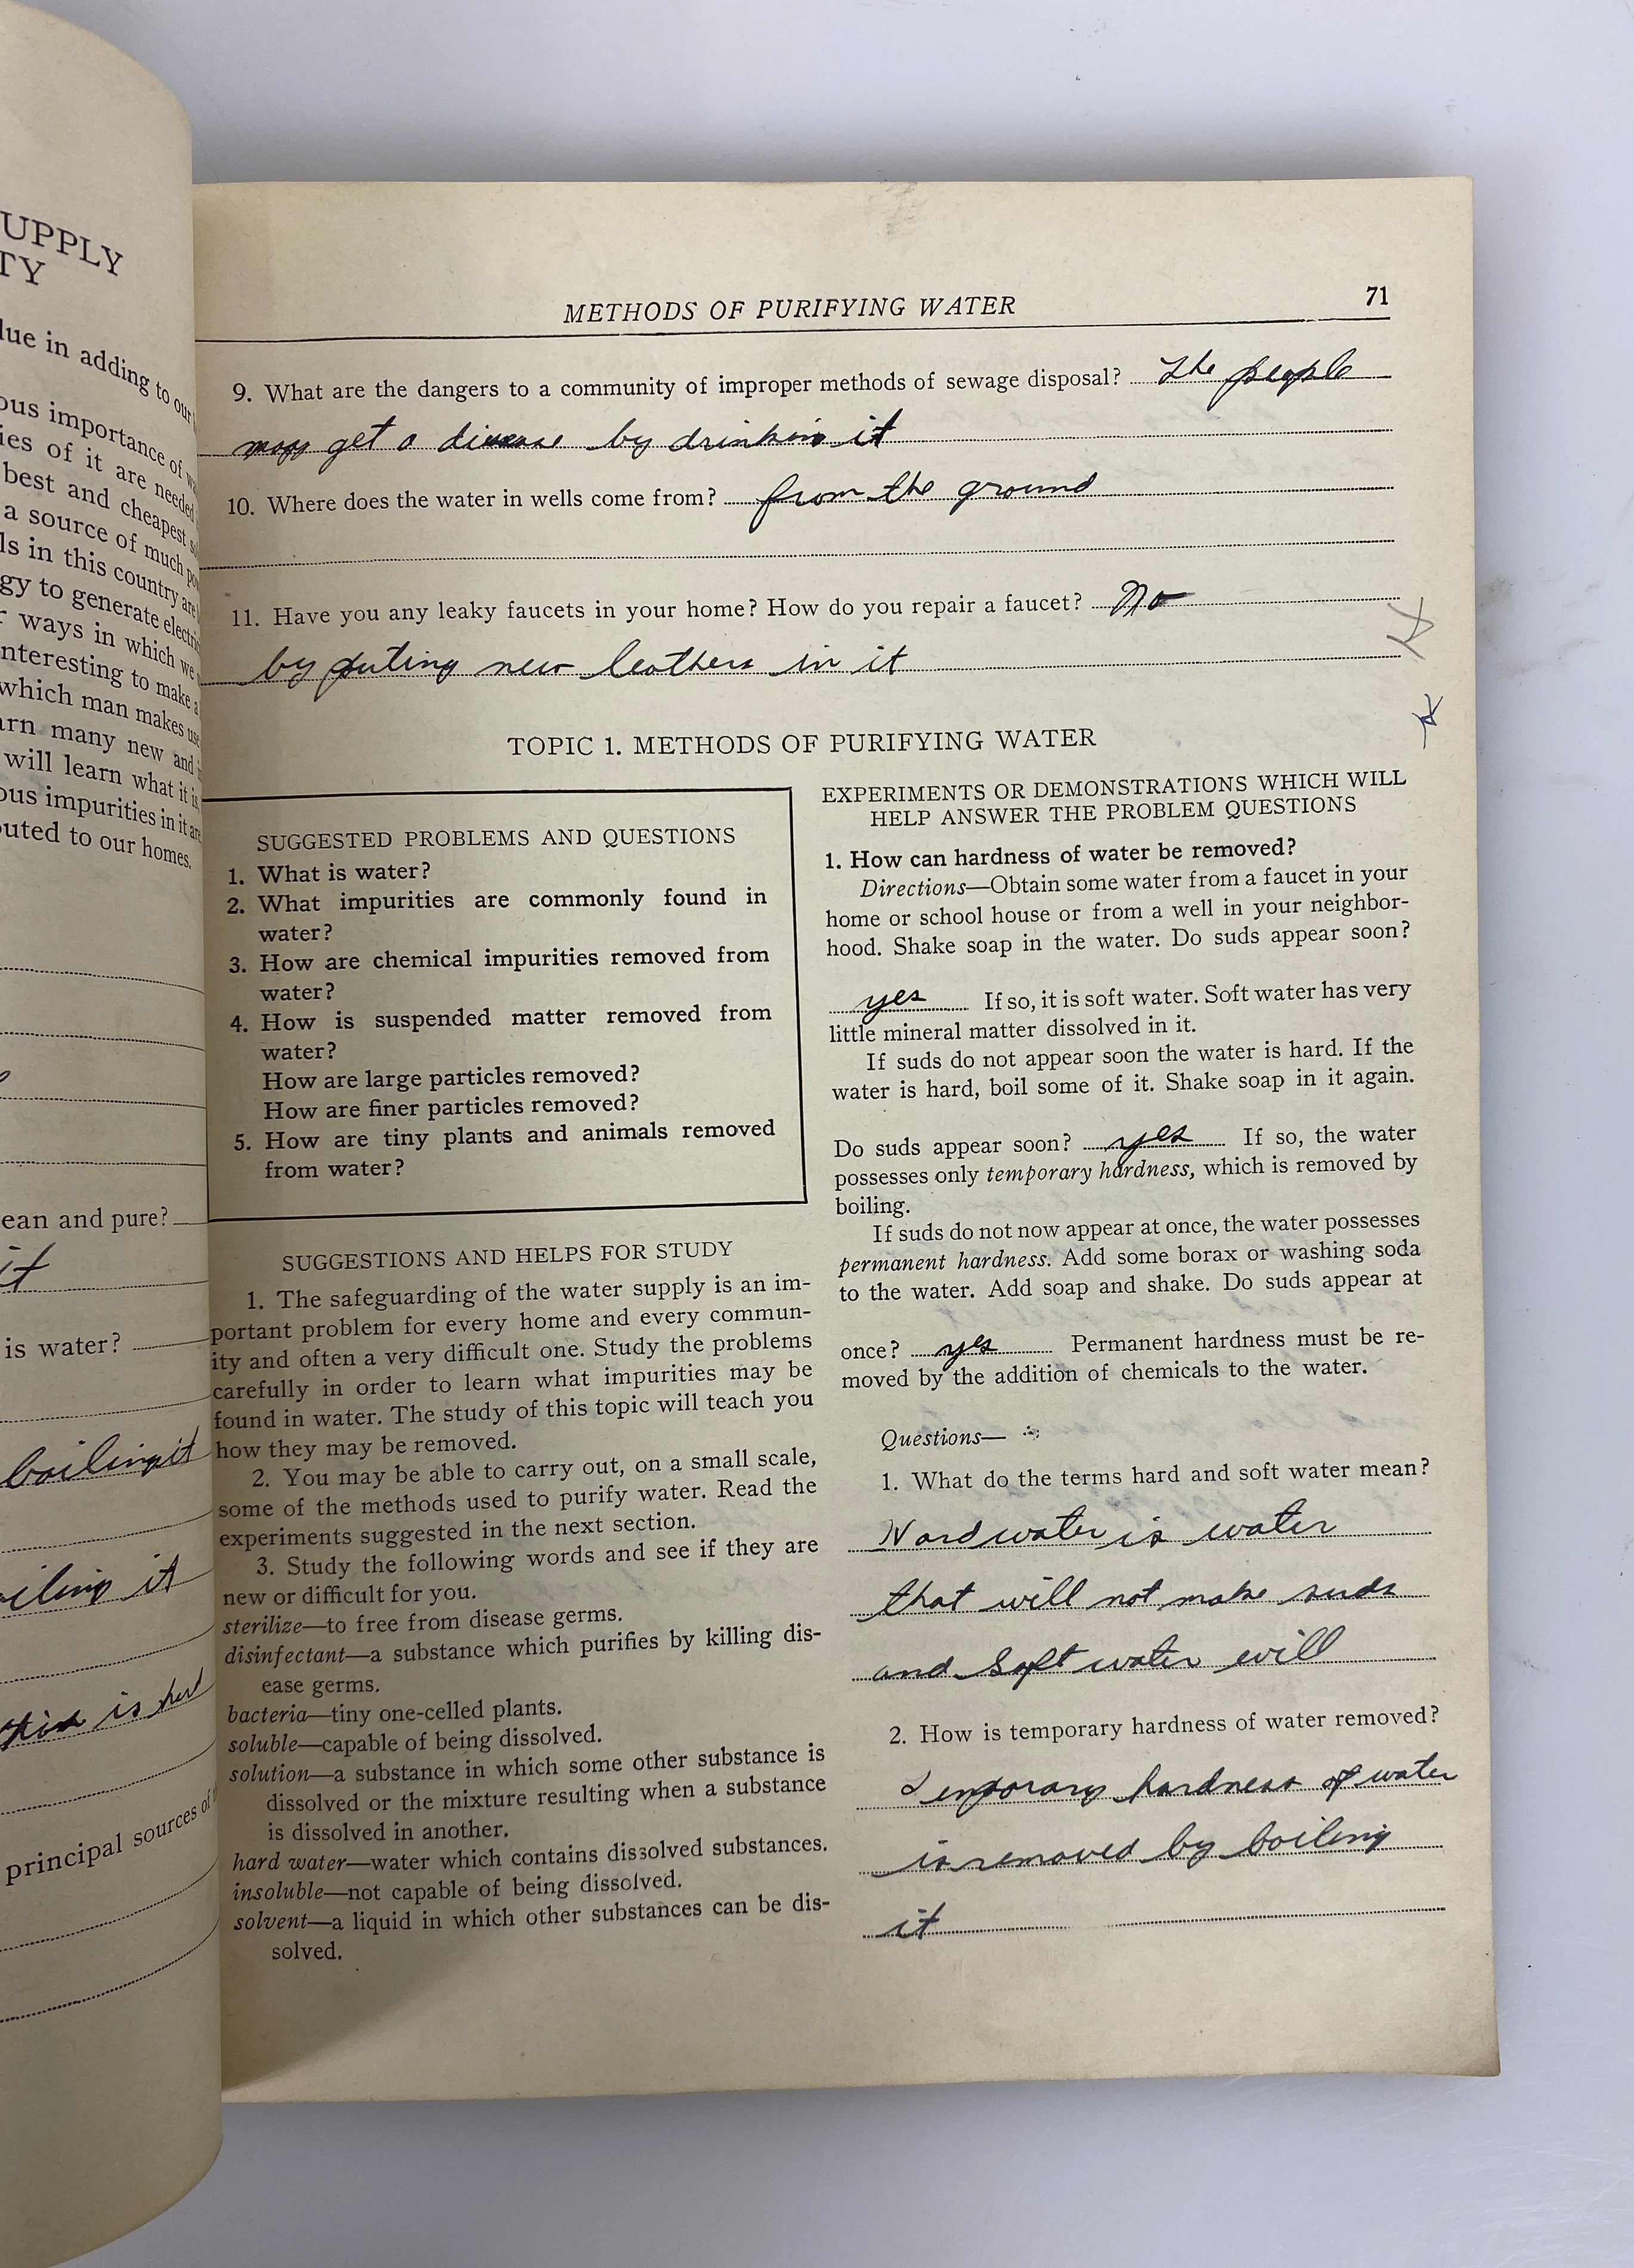 UPPLY
TY
lue in adding to our
ous importance of
ies of it are needed
best and cheapest
a source of much
ls in this country are
gy to generate
r ways in which we
nteresting to make a
which man makes
arn many new and
will learn what it is
ous impurities in it are
outed to our homes.
ean and pure?
it
is water?
boiling it
iling it
is
principal sources of
METHODS OF PURIFYING WATER 71
9. What are the dangers to a community of improper methods of sewage disposal? The people
may get a disease by drinkin it
10. Where does the water in wells come from? from the ground
11. Have you any leaky faucets in your home? How do you repair a faucet? No
by puting new leathers in it
TOPIC 1. METHODS OF PURIFYING WATER
SUGGESTED PROBLEMS AND QUESTIONS
1. What is water?
2. What impurities are commonly found in
water?
3. How are chemical impurities removed from
water?
4. How is suspended matter removed from
water?
How are large particles removed?
How are finer particles removed?
5. How are tiny plants and animals removed
from water?
SUGGESTIONS AND HELPS FOR STUDY
1. The safeguarding of the water supply is an im-
portant problem for every home and every commun-
ity and often a very difficult one. Study the problems
carefully in order to learn what impurities may be
found in water. The study of this topic will teach you
how they may be removed.
2. You may be able to carry out, on a small scale,
some of the methods used to purify water. Read the
experiments suggested in the next section.
3. Study the following words and see if they are
new or difficult for you.
sterilize—to free from disease germs.
disinfectant—a substance which purifies by killing dis-
ease germs.
bacteria—tiny one-celled plants.
soluble—capable of being dissolved.
solution—a substance in which some other substance is
dissolved or the mixture resulting when a substance
is dissolved in another.
hard water—water which contains dissolved substances.
insoluble—not capable of being dissolved.
solvent—a liquid in which other substances can be dis-
solved.
EXPERIMENTS OR DEMONSTRATIONS WHICH WILL
HELP ANSWER THE PROBLEM QUESTIONS
1. How can hardness of water be removed?
Directions—Obtain some water from a faucet in your
home or school house or from a well in your neighbor-
hood. Shake soap in the water. Do suds appear soon?
yes If so, it is soft water. Soft water has very
little mineral matter dissolved in it.
If suds do not appear soon the water is hard. If the
water is hard, boil some of it. Shake soap in it again.
Do suds appear soon? yes If so, the water
possesses only temporary hardness, which is removed by
boiling.
If suds do not now appear at once, the water possesses
permanent hardness. Add some borax or washing soda
to the water. Add soap and shake. Do suds appear at
once? yes Permanent hardness must be re-
moved by the addition of chemicals to the water.
Questions—
1. What do the terms hard and soft water mean?
Hard water is water
that will not make suds
and Soft water will
2. How is temporary hardness of water removed?
Temporary hardness of water
is removed by boiling
it